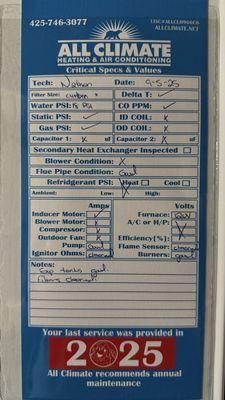 425-746-3077 LIC# ALLCLH906C6
ALLCLIMATE.NET
ALL CLIMATE
HEATING & AIR CONDITIONING
Critical Specs & Values
Tech: Nathan Date: 9-5-25
Filter Size: custom Delta T: ✓
Water PSI: PSI CO PPM: ✓
Static PSI: ✓ ID COIL: X
Gas PSI: ✓ OD COIL: X
Capacitor 1: X uf Capacitor 2: X uf
Secondary Heat Exchanger Inspected
Blower Condition: X
Flue Pipe Condition: Good
Refrigerant PSI: Heat Cool
Ambient: Low: High:
Amps Volts
Inducer Motor: ✓ Furnace: Good
Blower Motor: X A/C or H/P: X
Compressor: X
Outdoor Fan: X Efficiency(%): X
Pump: Good Flame Sensor: cleaned
Ignitor Ohms: cleaned Burners: good
Notes:
Exp tanks good.
Filters cleaned.
Your last service was provided in
2025
All Climate recommends annual
maintenance